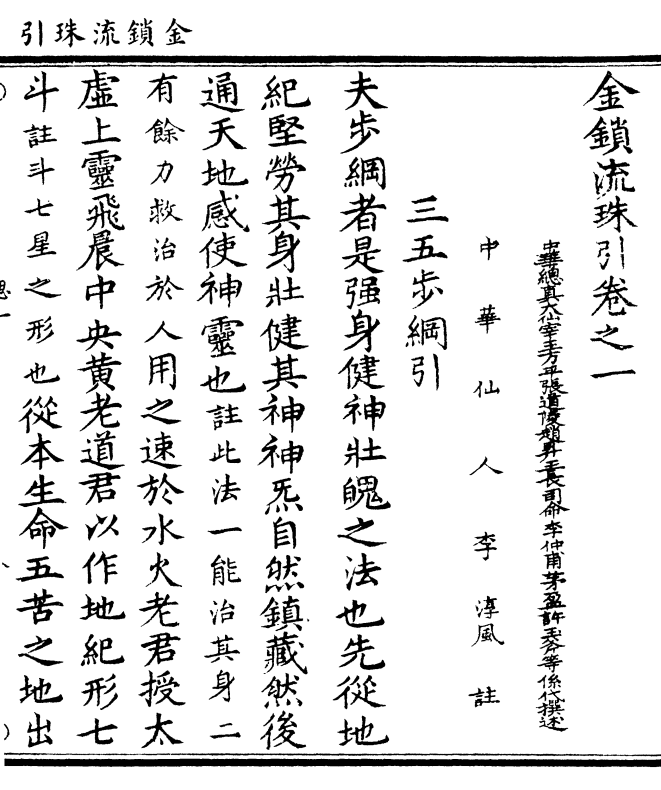 金鎖流珠引
金鎖流珠引卷之一
中華總真大仙宰王方平張道陵趙昇王長司命李仲甫茅盈許玉斧等係代撰述
中華仙人李淳風註
三五步綱引
夫步綱者是强身健神壯魄之法也先從地
紀堅勞其身壯健其神神炁自然鎮藏然後
通天地感使神靈也註此法一能治其身二
有餘力救治於人用之速於水火老君授太
虛上靈飛晨中央黄老道君以作地紀形七
斗註斗七星之形也從本生命五苦之地出